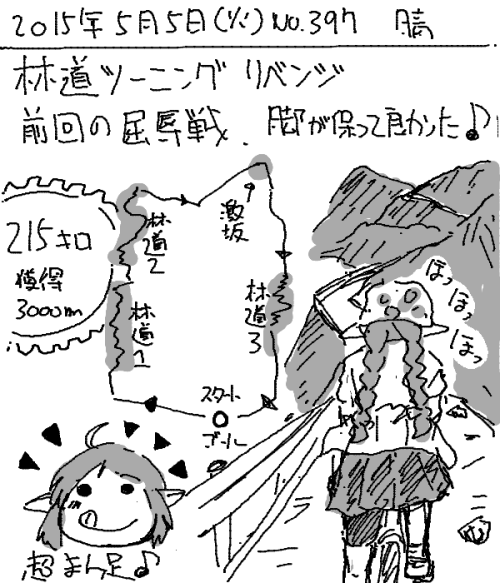 2015年5月5日(火) No.397 晴
林道ツーニング リベンジ
前回の屈辱戦、脚が保って良かった♪
215キロ
獲得
3000m
林道2
林道1
激坂
林道3
スタート
ゴール
ほっ
ほっ
ほっ
超まん足♪